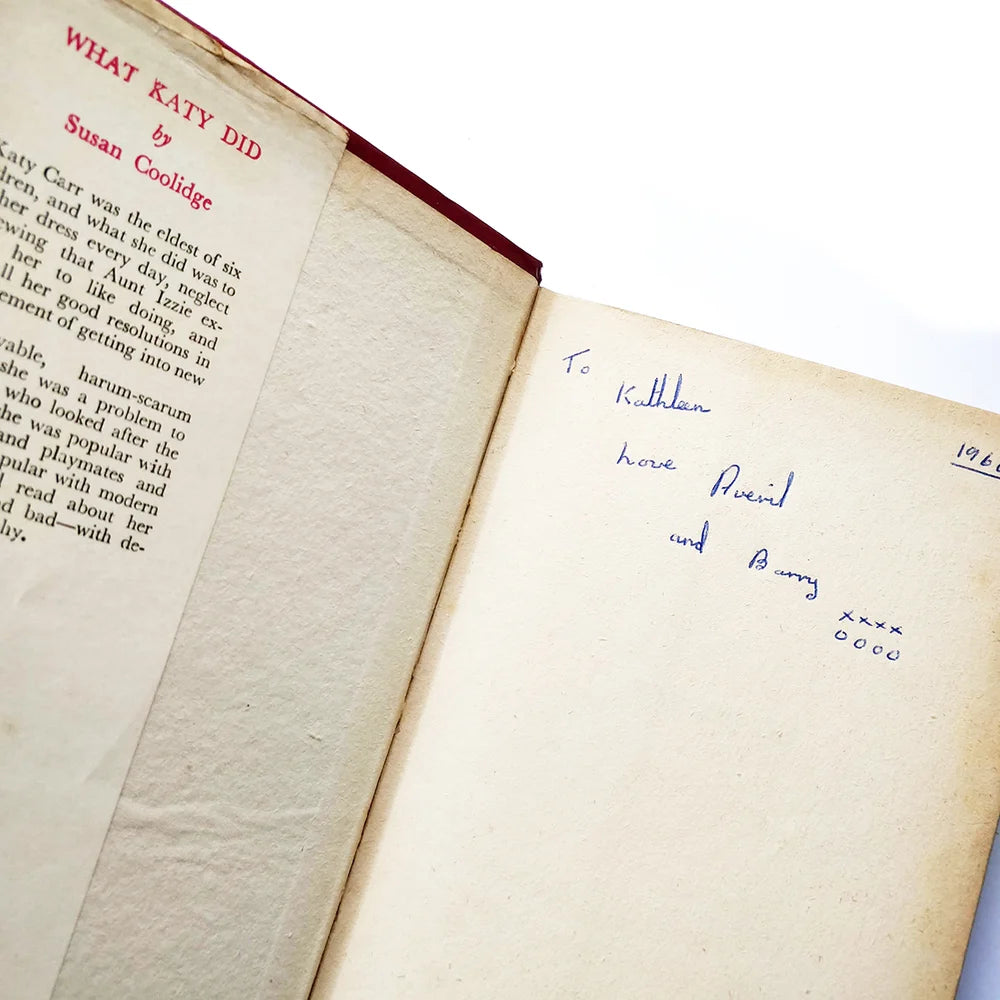 WHAT KATY DID
by
Susan Coolidge
Katy Carr was the eldest of six
dren, and what she did was to
her dress every day, neglect
ewing that Aunt Izzie ex-
her to like doing, and
ll her good resolutions in
ement of getting into new
vable, harum-scarum
she was a problem to
who looked after the
he was popular with
and playmates and
pular with modern
read about her
d bad—with de-
hy.
To
Kathleen
1966
Love
Averil
and Barry
xxxx
oooo